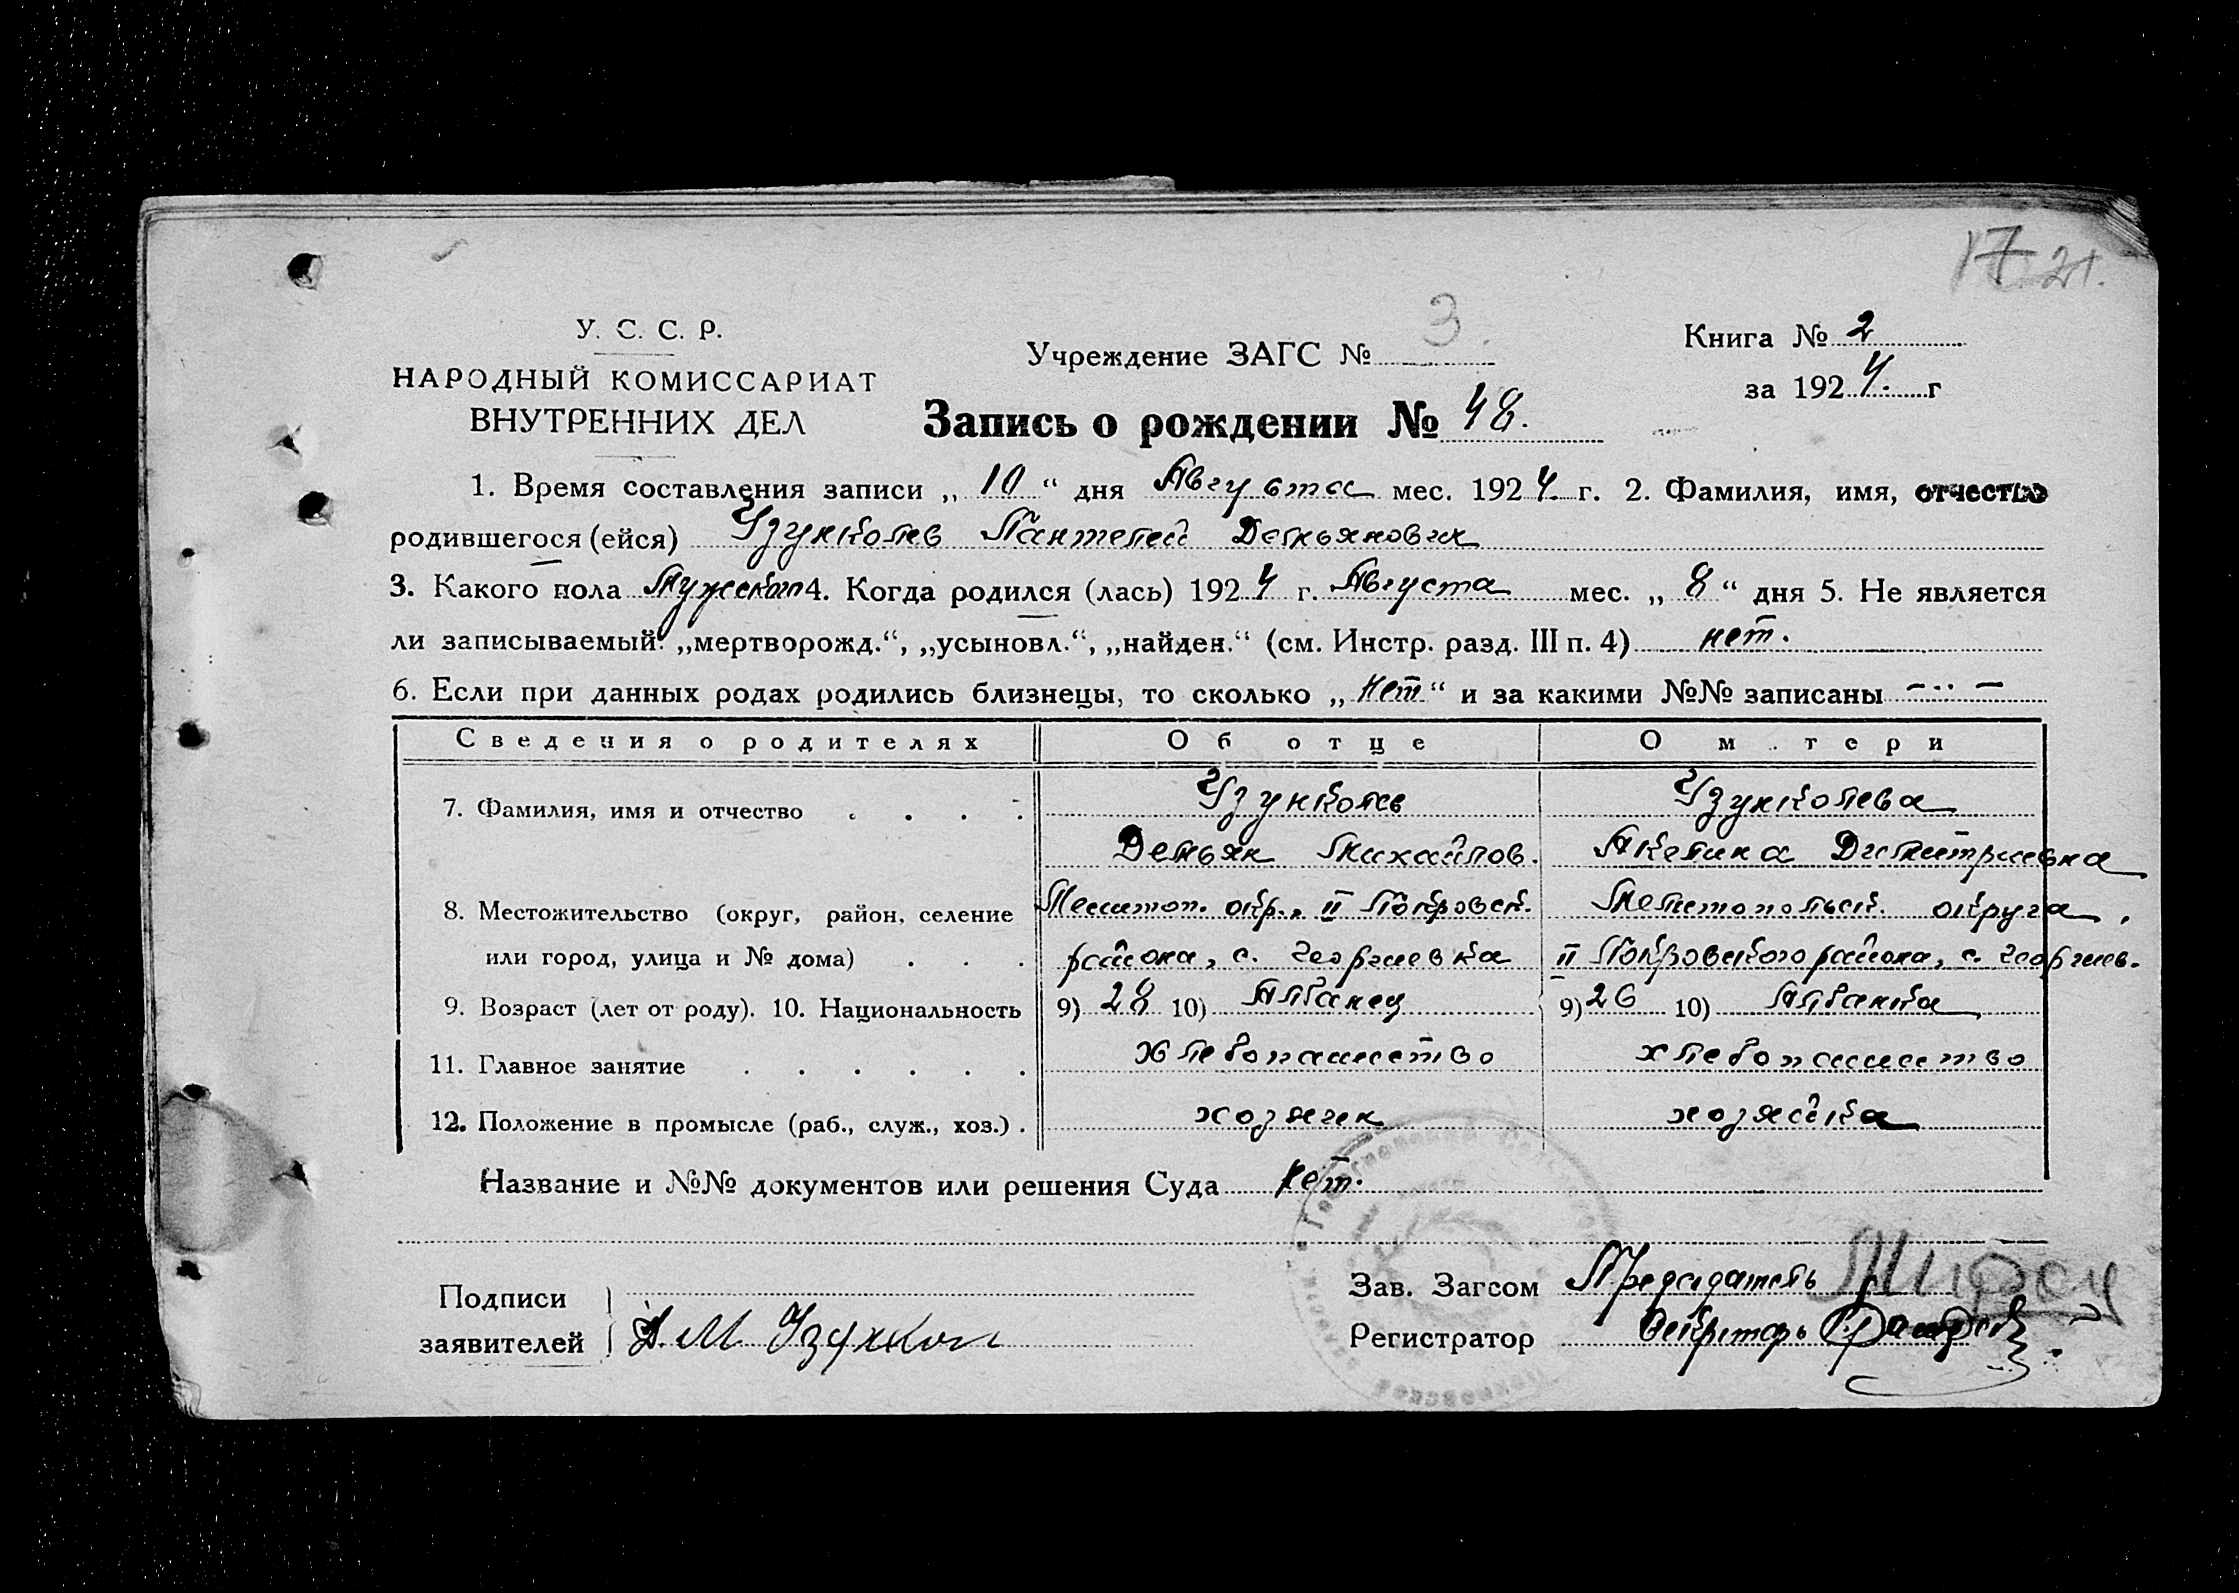 17 21.
У. С. С. Р.
НАРОДНЫЙ КОМИССАРИАТ
ВНУТРЕННИХ ДЕЛ
Учреждение ЗАГС № 3.
Книга № 2
за 1924. г
Запись о рождении № 48.
1. Время составления записи „10“ дня Августа мес. 1924 г. 2. Фамилия, имя, отчество
родившегося (ейся) Узунколев Пантелей Демьянович
3. Какого пола Мужского 4. Когда родился (лась) 1924 г. Августа мес. „8“ дня 5. Не является
ли записываемый: „мертворожд.“, „усыновл.“, „найден.“ (см. Инстр. разд. III п. 4) нет.
6. Если при данных родах родились близнецы, то сколько „нет“ и за какими №№ записаны — —
Сведения о родителях Об отце О м тери
7. Фамилия, имя и отчество Узунколев Узунколева
Демьян Михайлов. Акелина Дмитриевна
8. Местожительство (округ, район, селение Мелитоп. окр., II Покровск. Мелитопольск. округа,
или город, улица и № дома) района, с. Георгиевка II Покровского района, с. Георгиев.
9. Возраст (лет от роду). 10. Национальность 9) 28 10) Албанец 9) 26 10) Албанка
11. Главное занятие хлебопашество хлебопашество
12. Положение в промысле (раб., служ., хоз.) хозяин хозяйка
Название и №№ документов или решения Суда нет.
Подписи
заявителей Д. М Узункол
Зав. Загсом Председатель
Регистратор Секретарь